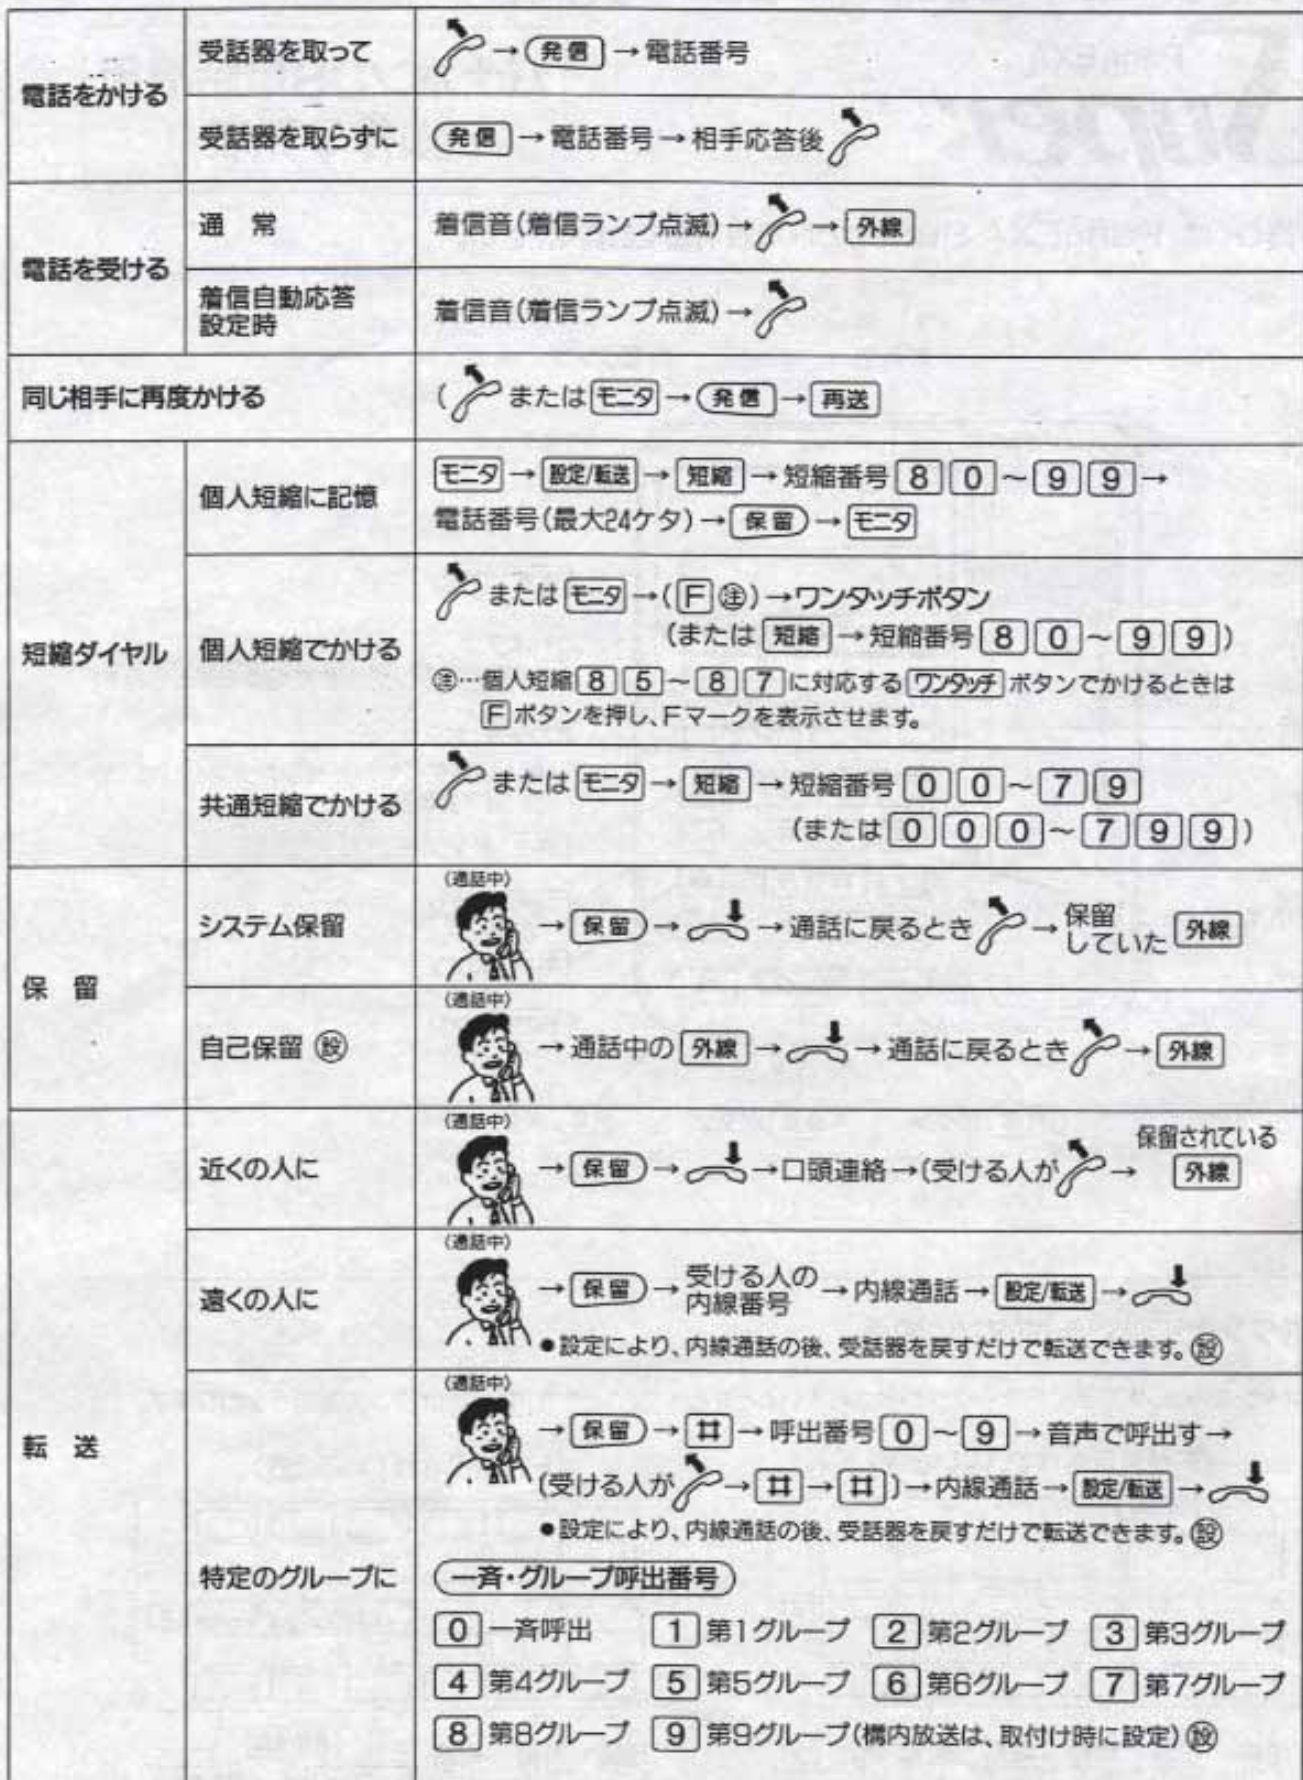 電話をかける
受話器を取って
→ 発信 → 電話番号
受話器を取らずに
発信 → 電話番号 → 相手応答後
電話を受ける
通 常
着信音(着信ランプ点滅) → → 外線
着信自動応答
設定時
着信音(着信ランプ点滅) →
同じ相手に再度かける
( または モニタ → 発信 → 再送
短縮ダイヤル
個人短縮に記憶
モニタ → 設定/転送 → 短縮 → 短縮番号 8 0 ~ 9 9 →
電話番号(最大24ケタ) → 保留 → モニタ
個人短縮でかける
または モニタ → (F 注) → ワンタッチボタン
(または 短縮 → 短縮番号 8 0 ~ 9 9)
注…個人短縮 8 5 ~ 8 7 に対応する ワンタッチ ボタンでかけるときは
F ボタンを押し、Fマークを表示させます。
共通短縮でかける
または モニタ → 短縮 → 短縮番号 0 0 ~ 7 9
(または 0 0 0 ~ 7 9 9)
保 留
システム保留
(通話中)
→ 保留 → → 通話に戻るとき → 保留
していた 外線
自己保留 設
(通話中)
→ 通話中の 外線 → → 通話に戻るとき → 外線
転 送
近くの人に
(通話中)
保留されている
→ 保留 → → 口頭連絡 → (受ける人が → 外線
遠くの人に
(通話中)
→ 保留 → 受ける人の
内線番号 → 内線通話 → 設定/転送 →
●設定により、内線通話の後、受話器を戻すだけで転送できます。設
特定のグループに
(通話中)
→ 保留 → # → 呼出番号 0 ~ 9 → 音声で呼出す →
(受ける人が → # → #) → 内線通話 → 設定/転送 →
●設定により、内線通話の後、受話器を戻すだけで転送できます。設
一斉・グループ呼出番号
0 一斉呼出 1 第1グループ 2 第2グループ 3 第3グループ
4 第4グループ 5 第5グループ 6 第6グループ 7 第7グループ
8 第8グループ 9 第9グループ(構内放送は、取付け時に設定) 設